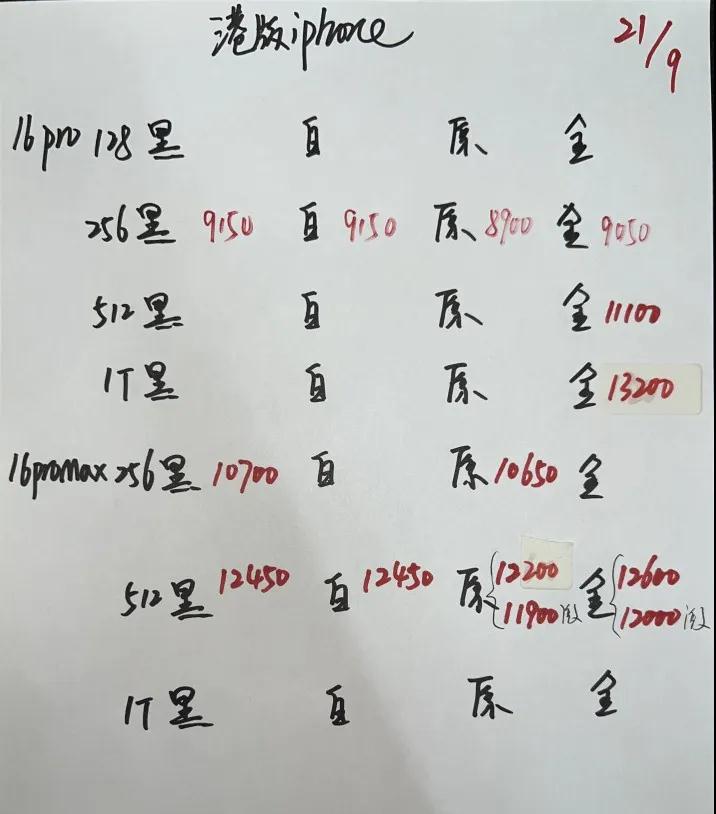 港版iphone 21/9
16pro 128黑 白 原 金
256黑 9150 白 9150 原 8900 金 9050
512黑 白 原 金 11100
1T黑 白 原 金 13200
16promax 256黑 10700 白 原 10650 金
512黑 12450 白 12450 原 12200 金 12600
11900激 12000激
1T黑 白 原 金